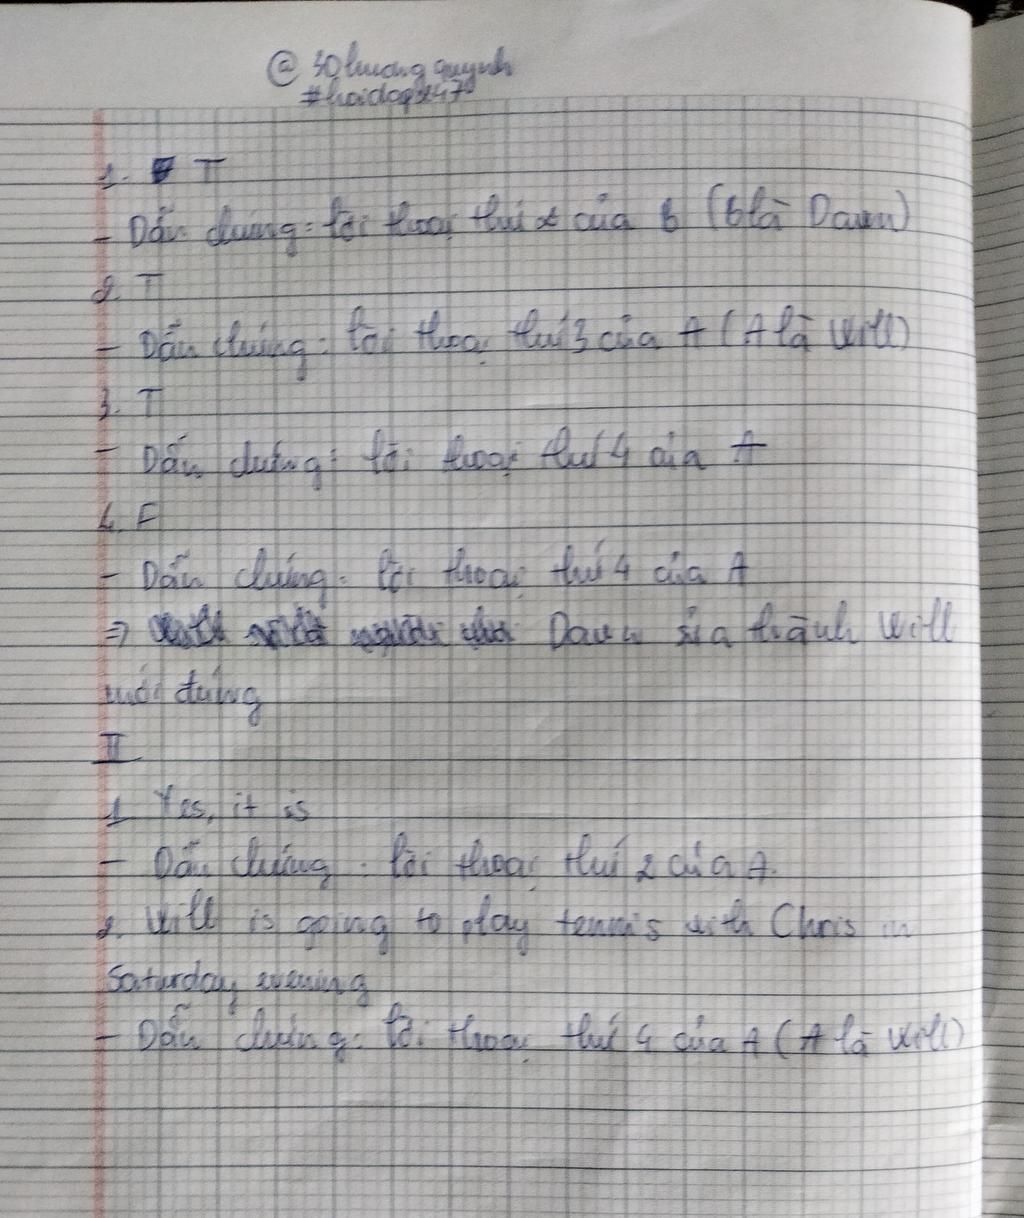 @ 30 huong quynh
#hoidap247
1. T
- Dẫn chứng: lời thoại thứ của B (B là Dawn)
2. T
- Dẫn chứng: lời thoại thứ 3 của A (A là Will)
3. T
- Dẫn chứng: lời thoại thứ 4 của A
4. F
- Dẫn chứng: lời thoại thứ 4 của A
=> Dawn sửa thành Will
mới đúng
II
1 Yes, it is
- Dẫn chứng: lời thoại thứ 2 của A.
2. Will is going to play tennis with Chris in
Saturday evening
- Dẫn chứng: lời thoại thứ 4 của A (A là Will)